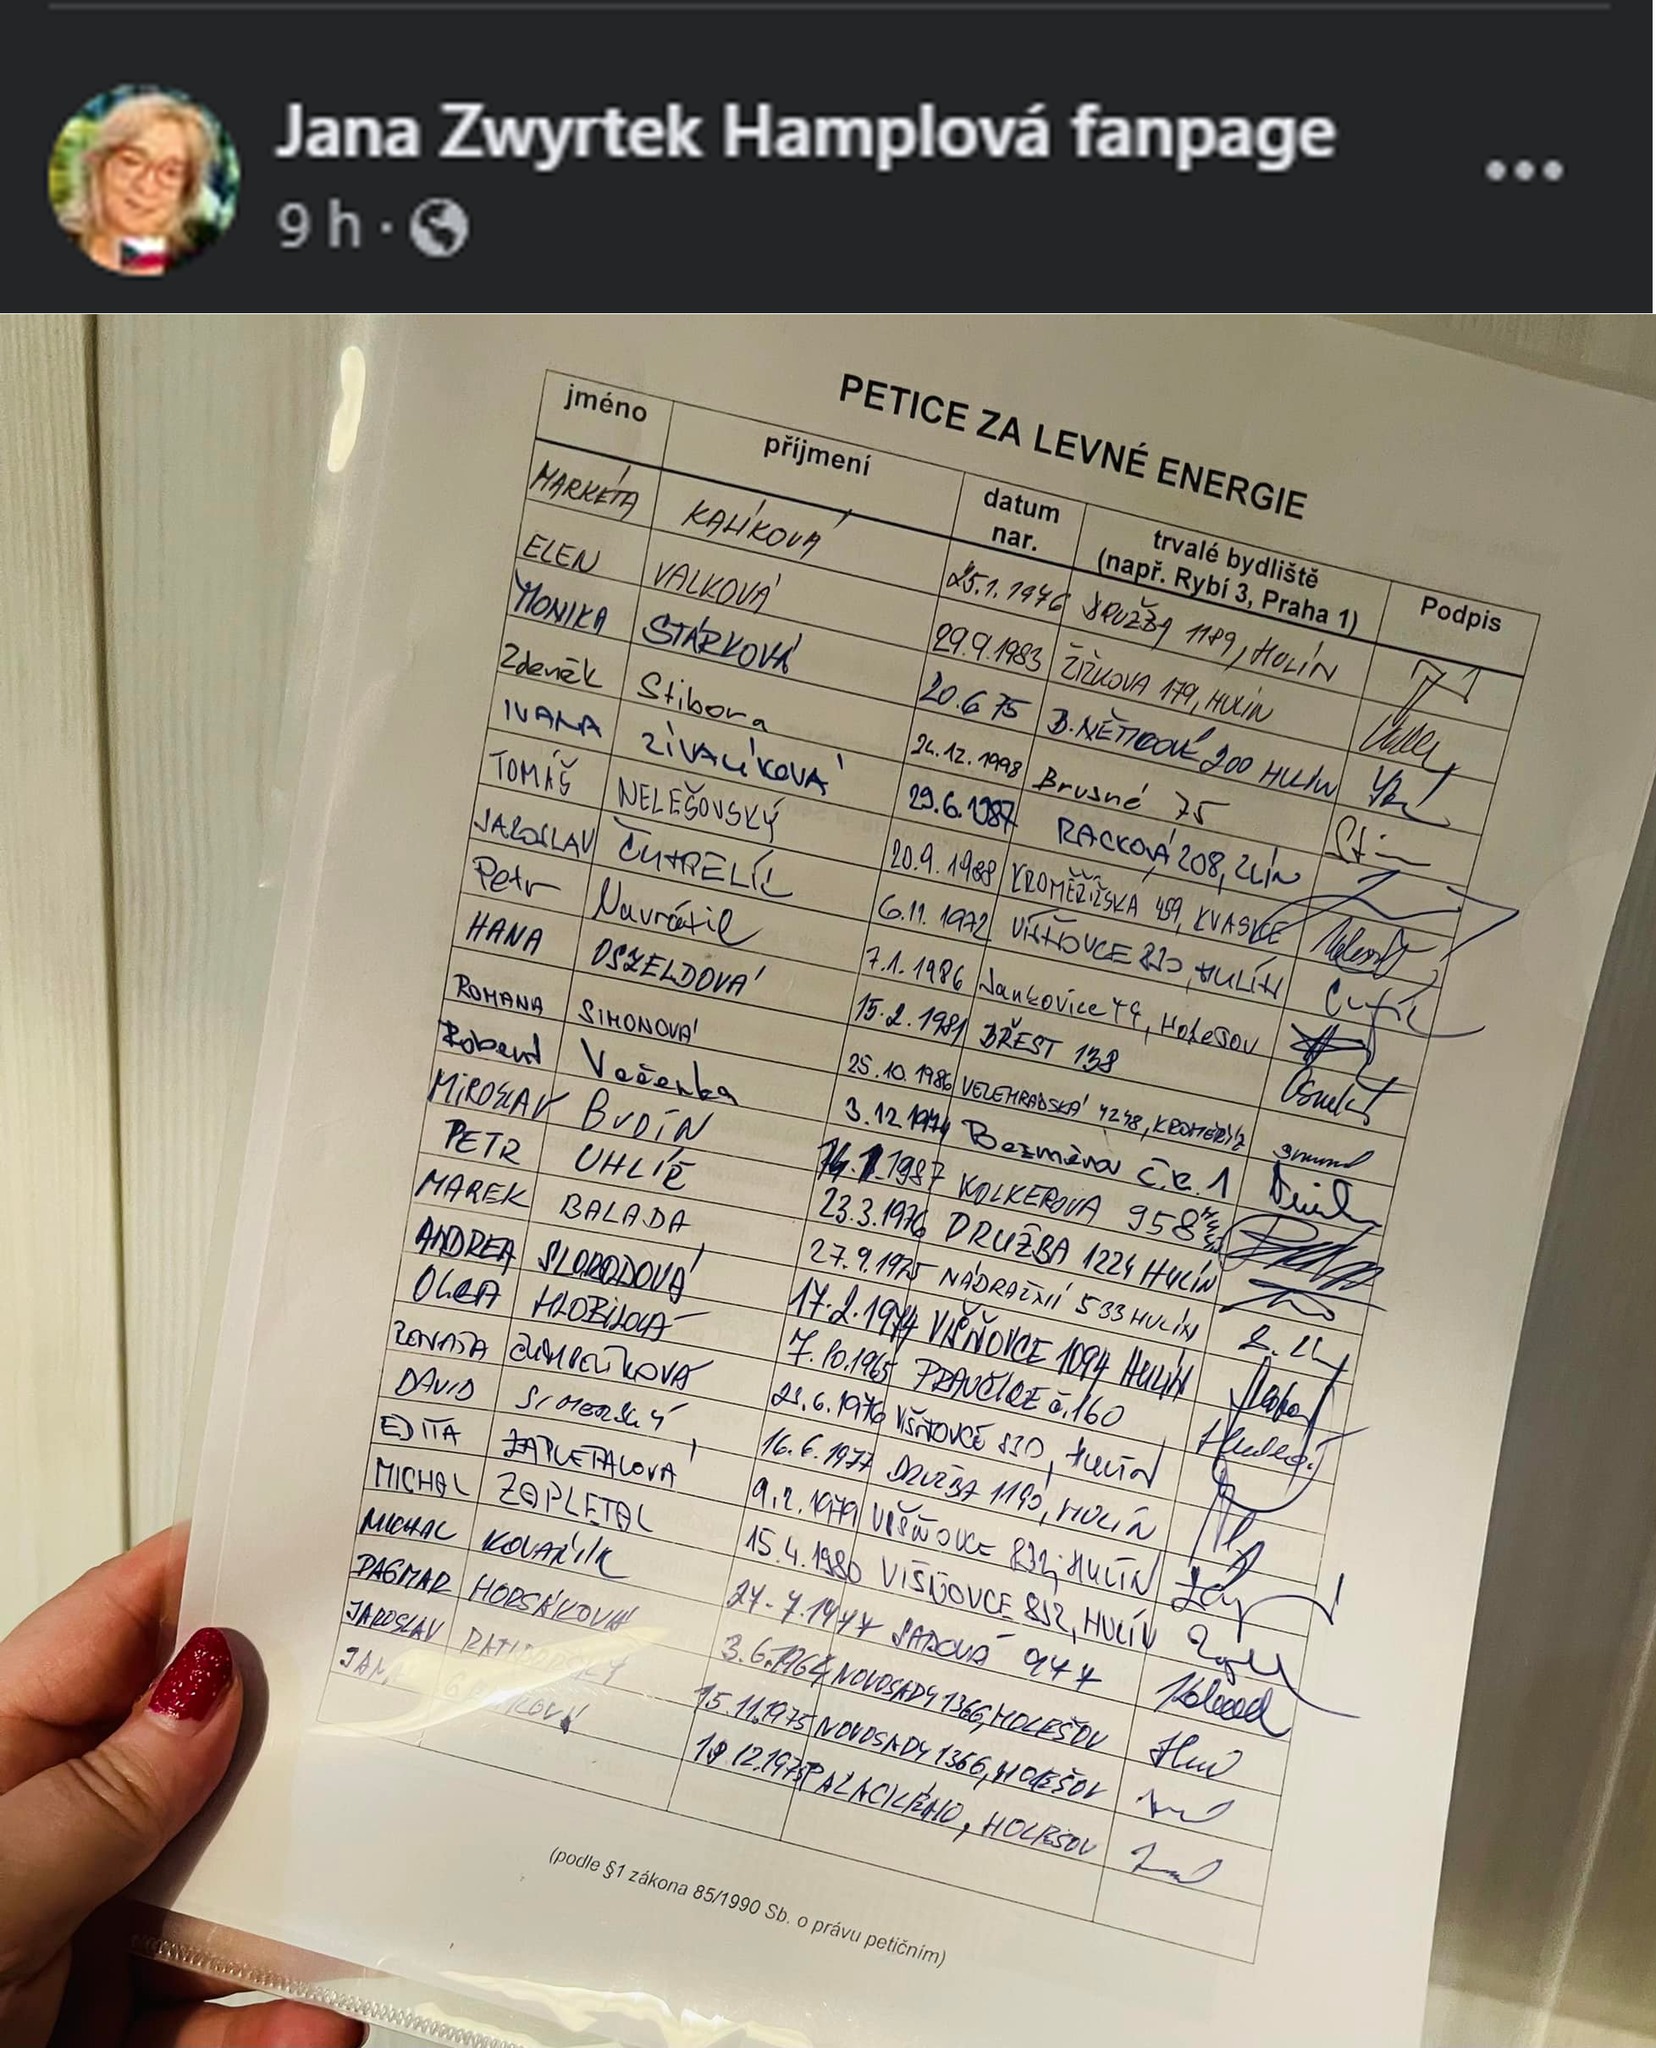 Jana Zwyrtek Hamplová fanpage
9 h
PETICE ZA LEVNÉ ENERGIE
jméno příjmení datum nar. trvalé bydliště (např. Rybí 3, Praha 1) Podpis
MARKÉTA KALÍKOVÁ 25.1.1976 DRUŽBA 1189, HULÍN
ELEN VALKOVÁ 29.9.1983 ŽIŽKOVA 179, HULÍN
MONIKA STÁRKOVÁ 20.6 75 B.NĚMCOVÉ 200 HULÍN
Zdeněk Stibora 24.12.1998 Brusné 75
IVANA ZÍVALÍKOVÁ 29.6.1987 RACKOVÁ 208, ZLÍN
TOMÁŠ NELEŠOVSKÝ 20.9.1988 KROMĚŘÍŽSKÁ 459, KVASICE
JAROSLAV 6.11.1972 VIŠŇOVCE 830, HULÍN
Petr Navrátil 7.1.1986 Jankovice 44, Holešov
HANA OSZELDOVÁ 15.2.1981 BŘEST 138
ROMANA SIMONOVÁ 25.10.1986 VELEHRADSKÁ 4248, KROMĚŘÍŽ
Robert Večerka 3.12.1974 Bezměrov č.e. 1
MIROSLAV BUDÍN 1987 WOLKEROVA 958
PETR UHLÍŘ 23.3.1976 DRUŽBA 1224 HULÍN
MAREK BALADA 27.9.1975 NÁDRAŽNÍ 533 HULÍN
ANDREA SLOBODOVÁ 17.2.1974 VIŠŇOVCE 1094 HULÍN
OLGA HLOBILOVÁ 7.10.1965 PRAVČICE č.160
RENATA 6.1976 VIŠŇOVCE 830, HULÍN
DAVID SIMERSKÝ 16.6.1977 DRUŽBA 1190, HULÍN
EDITA ZAPLETALOVÁ 9.2.1979 VIŠŇOVCE 832, HULÍN
MICHAL ZAPLETAL 15.4.1980 VIŠŇOVCE 832, HULÍN
MICHAL KOVAŘÍK 27.7.1977 SADOVÁ 977
DAGMAR HORSÁKOVÁ 3.6.1964 NOVOSADY 1366, HOLEŠOV
JAROSLAV 15.11.1975 NOVOSADY 1366, HOLEŠOV
JANA 12.1975 PALACKÉHO, HOLEŠOV
(podle §1 zákona 85/1990 Sb. o právu petičním)